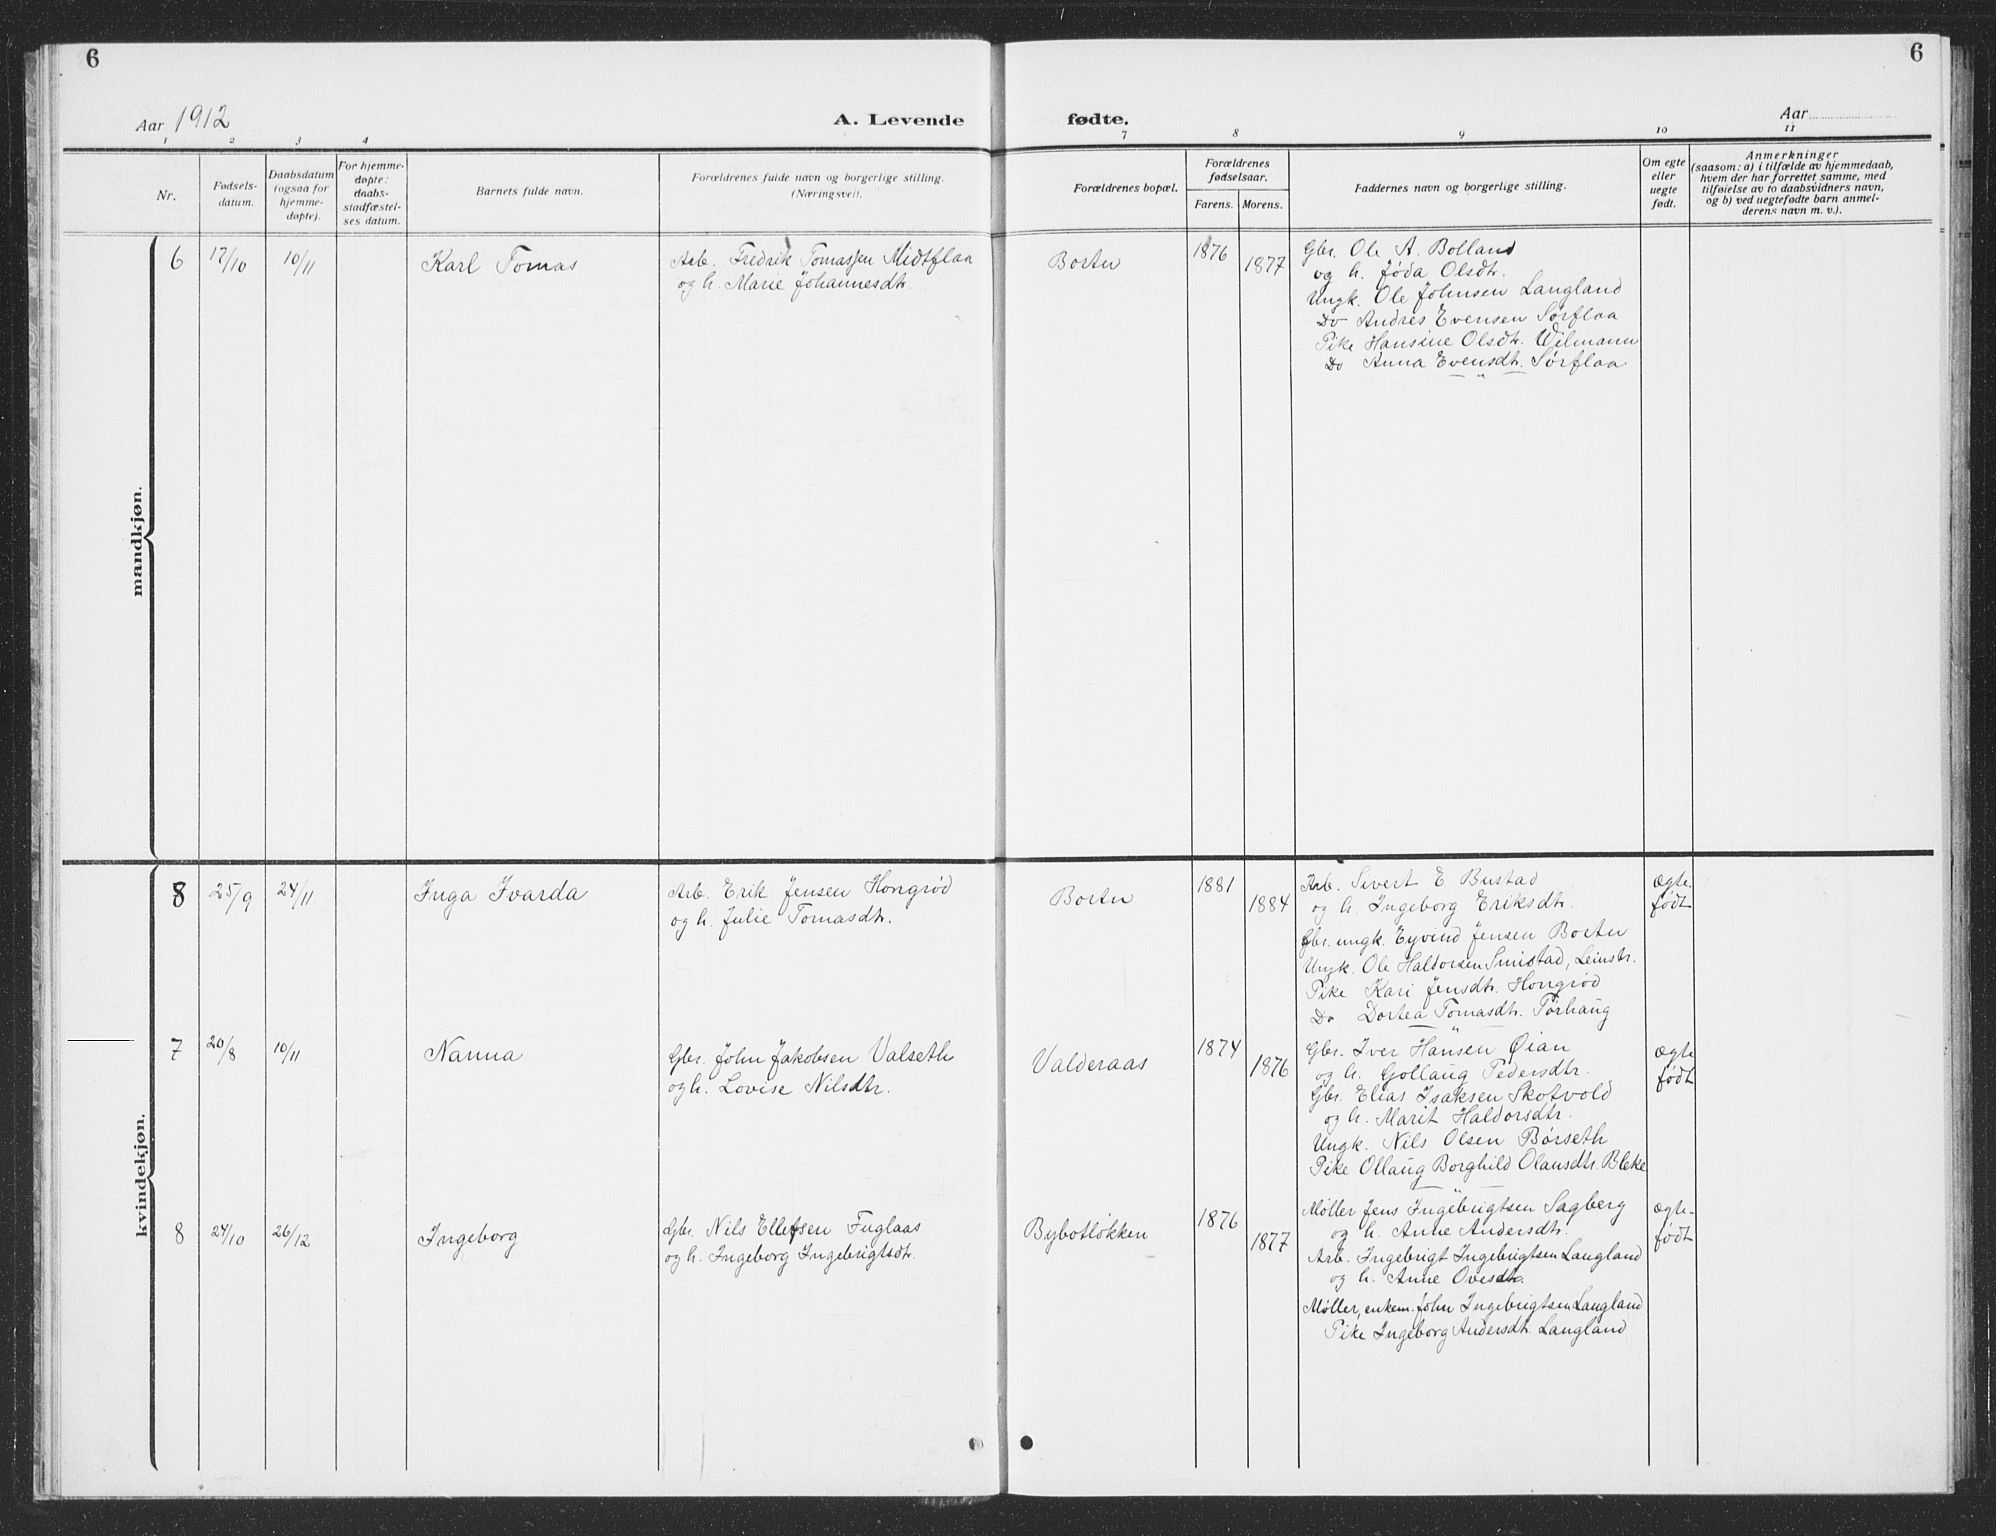 6
6
Aar 1912
A. Levende fødte.
Aar
1 2 3 4 7 8 9 10 11
Nr.
Fødsels-
datum.
Daabsdatum
(ogsaa for
hjemme-
døpte).
For hjemme-
døpte:
daabs-
stadfæstel-
ses datum.
Barnets fulde navn.
Forældrenes fulde navn og borgerlige stilling.
(Næringsvei).
Forældrenes bopæl.
Forældrenes
fødselsaar.
Farens. Morens.
Faddernes navn og borgerlige stilling.
Om egte
eller
uegte
født.
Anmerkninger
(saasom: a) i tilfælde av hjemmedaab,
hvem der har forrettet samme, med
tilføielse av to daabsvidners navn,
og b) ved uegtefødte barn anmel-
derens navn m. v.).
mandkjøn.
6 17/10 10/11 Karl Tomas
Arb. Fredrik Tomassen Midtflaa
og h. Marie Johannesdtr.
Borten
1876
1877
Gbr. Ole A. Bolland
og h. Jøda Olsdtr.
Ungk. Ole Johnsen Langland
Do Andres Evensen Sørflaa
Pike Hansine Olsdtr. Wilmann
Do Anna Evensdtr. Sørflaa
kvindekjøn.
8 25/9 24/11 Inga Ivarda
Arb. Erik Jensen Hongrød
og h. Julie Tomasdtr.
Borten
1881
1884
Arb. Sivert E. Bustad
og h. Ingeborg Eriksdtr.
Gbr. ungk. Eyvind Jensen Borten
Ungk. Ole Haldorsen Smistad, Leinstr.
Pike Kari Jensdtr. Hongrød
Do Dortea Tomasdtr. Tørhaug
Ægte-
født
7 20/8 10/11 Nanna
Gbr. John Jakobsen Valseth
og h. Lovise Nilsdtr.
Valderaas
1874
1876
Gbr. Iver Hansen Øian
og h. Gollaug Pedersdtr.
Gbr. Elias Isaksen Skotvold
og h. Marit Haldorsdtr.
Ungk. Nils Olsen Børseth
Pike Ollaug Borghild Olausdtr. Bleke
Ægte
født
8 24/10 26/12 Ingeborg
Gbr. Nils Ellefsen Fuglaas
og h. Ingeborg Ingebrigtsdtr.
Bybotløkken
1876
1877
Møller Jens Ingebrigtsen Sagberg
og h. Anne Andersdtr.
Arb. Ingebrigt Ingebrigtsen Langland
og h. Anne Ovesdtr.
Møller, enkem. John Ingebrigtsen Langland
Pike Ingeborg Andersdtr. Langland
Ægte-
født